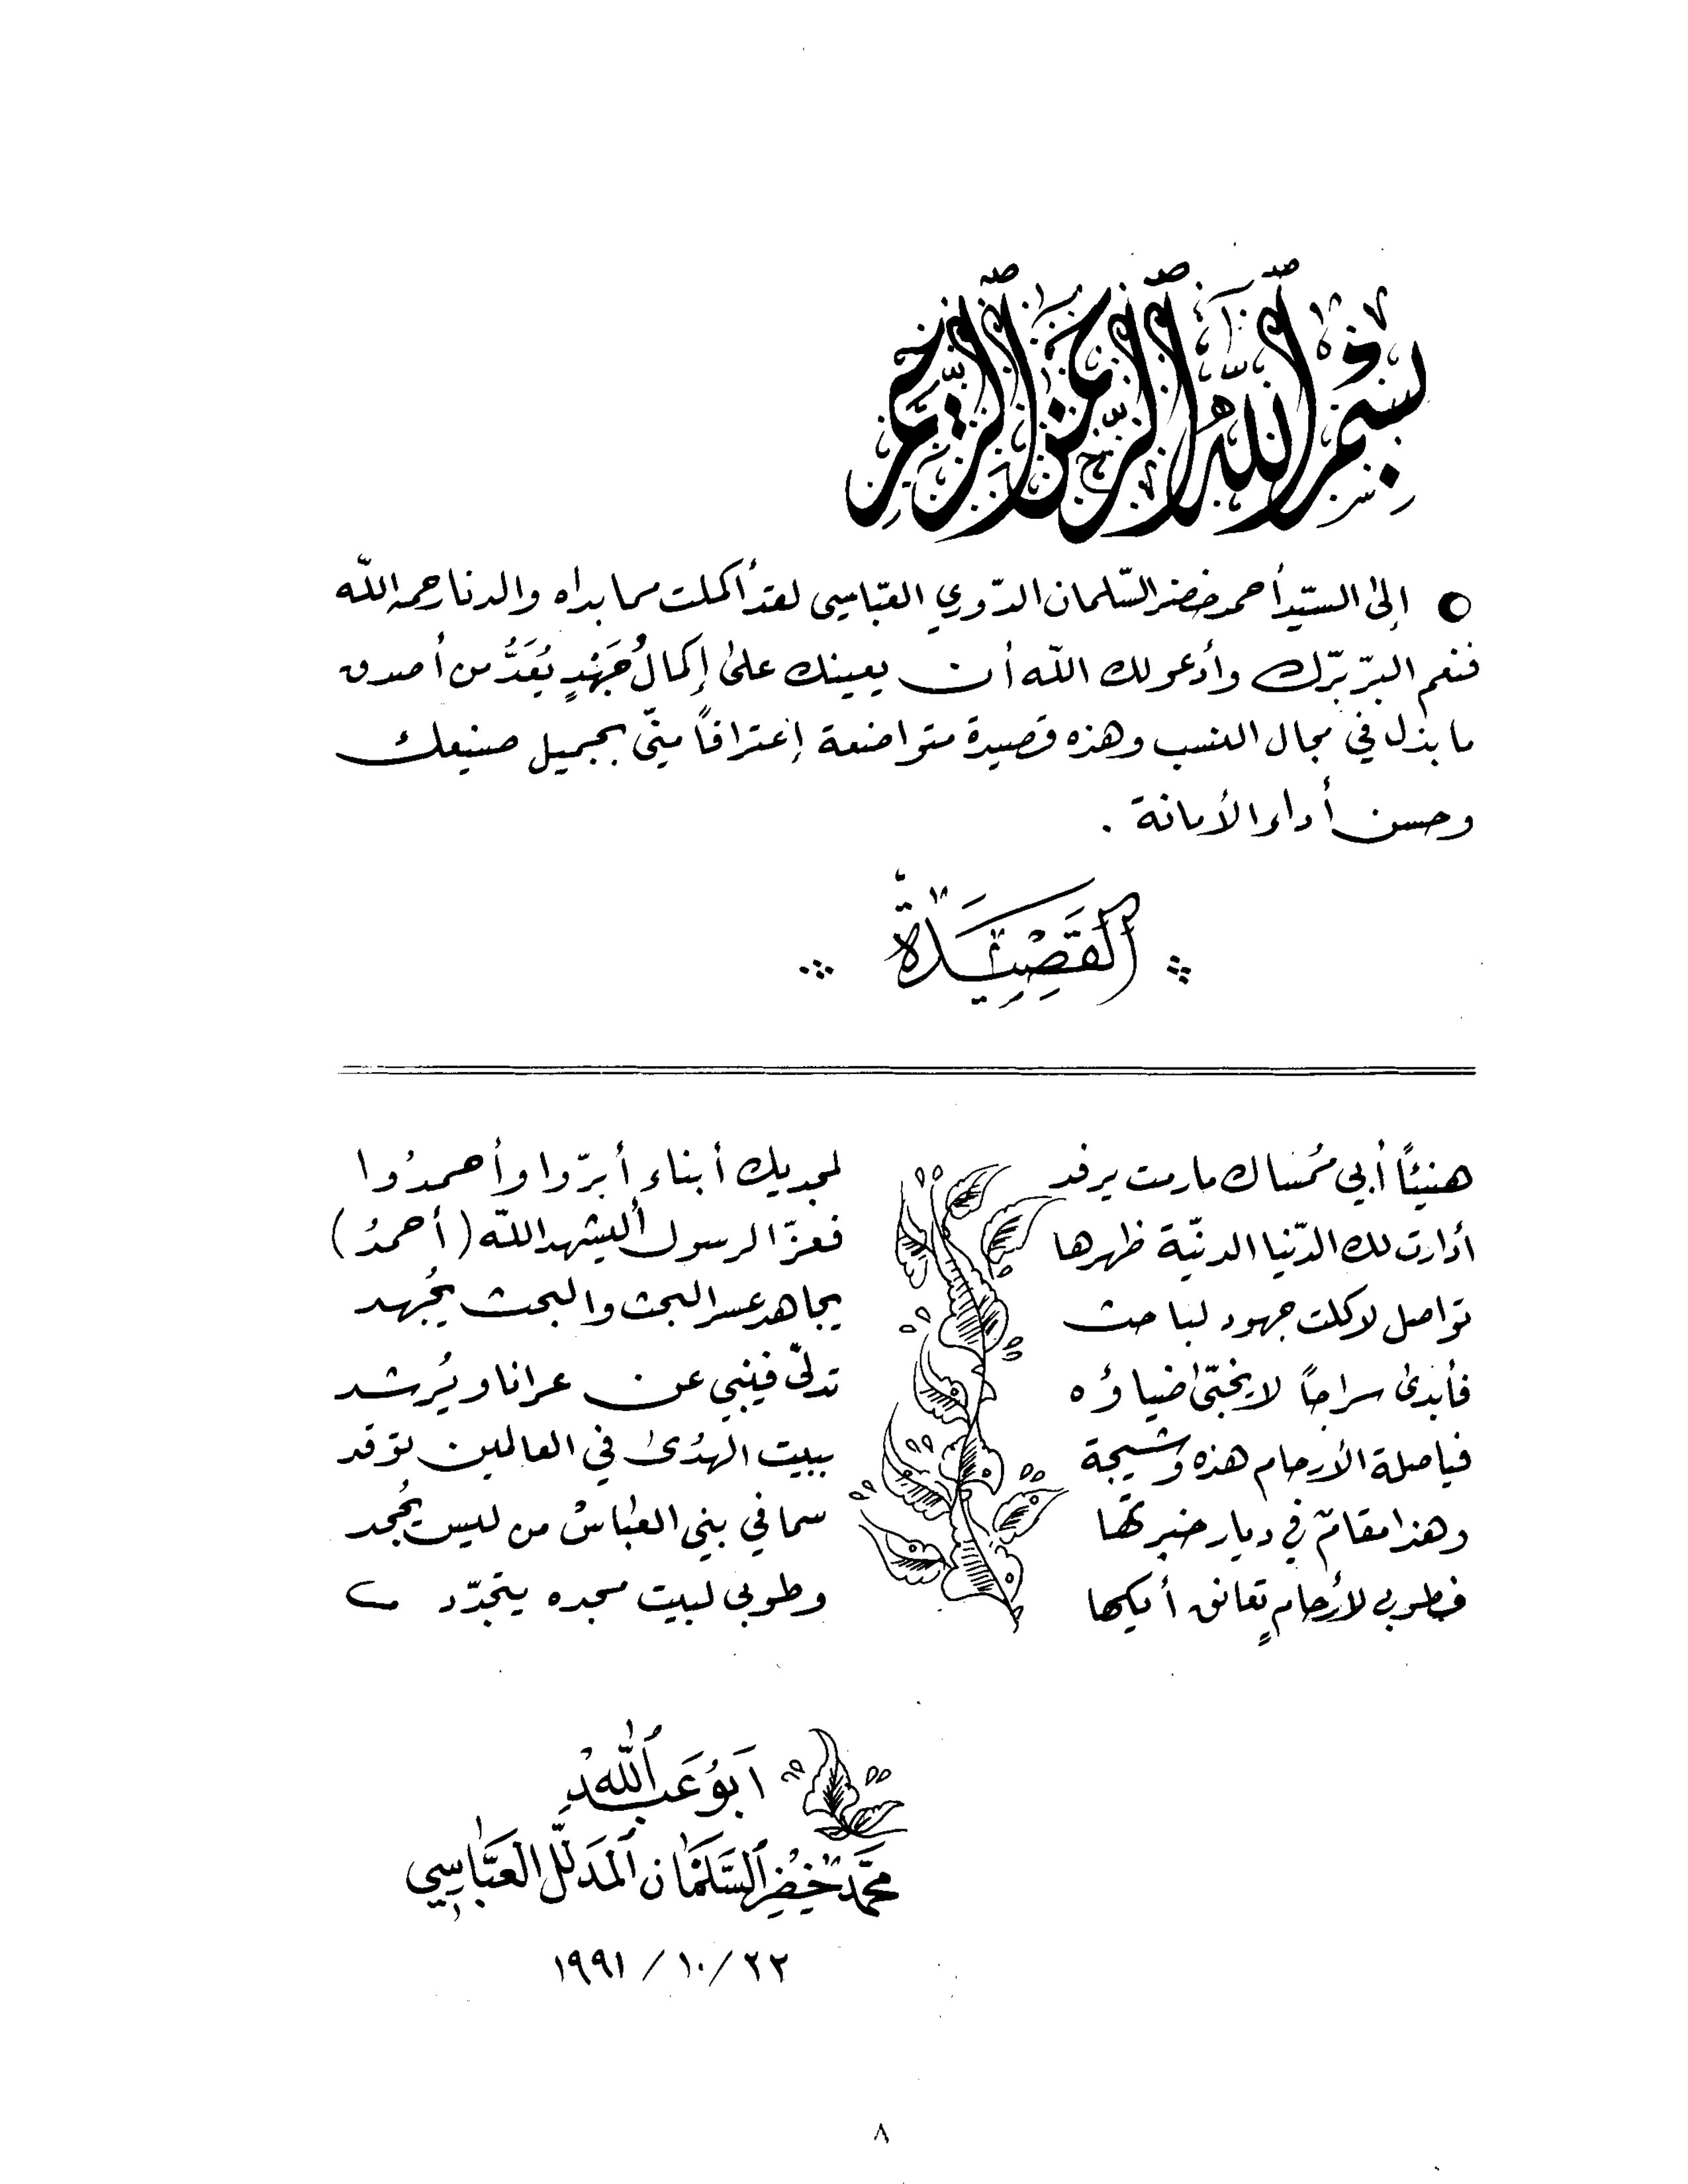 بسم الله الرحمن الرحيم
إلى السيّد أحمد خضر السّلمان الدّوري العبّاسي لقد أكملت مما بداه والدنا رحمه الله
فنعم البرّ برّك وأدعو لك الله أن يعينك على إكمال جَهْدٍ يُعَدُّ من أصدق
ما بذل في مجال النسب وهذه قصيدة متواضعة إعترافاً منّي بجميل صنيعك
وحسن أداء الأمانة .
القَصِيدَة
هنيئاً أبي مُمساك ما رمت يرفد لمجديك أبناء أبرّوا وأحمدُوا
أدارت لك الدّنيا الدنيّة ظهرها فعزّ الرسول أليشهد الله (أحمدُ)
تواصل لا كلت جهود لباحث يجاهد عسر البحث والبحث يُجهد
فأبدى سراجاً لا يخبّى ضياؤه تدلّى فينبي عن عرانا ويُرشد
فيا صلة الأرحام هذه وشيجة ببيت الهُدى في العالمين توقد
وهذا مقامٌ في ديار خبرتها سما في بني العبّاس من ليس يُجحد
فطوبى لأرحامٍ تعانق أيكها وطوبى لبيت مجده يتجدّد
ابو عبدالله
محمد خضر السلمان المدلل العباسي
٢٢/١٠/١٩٩١
٨